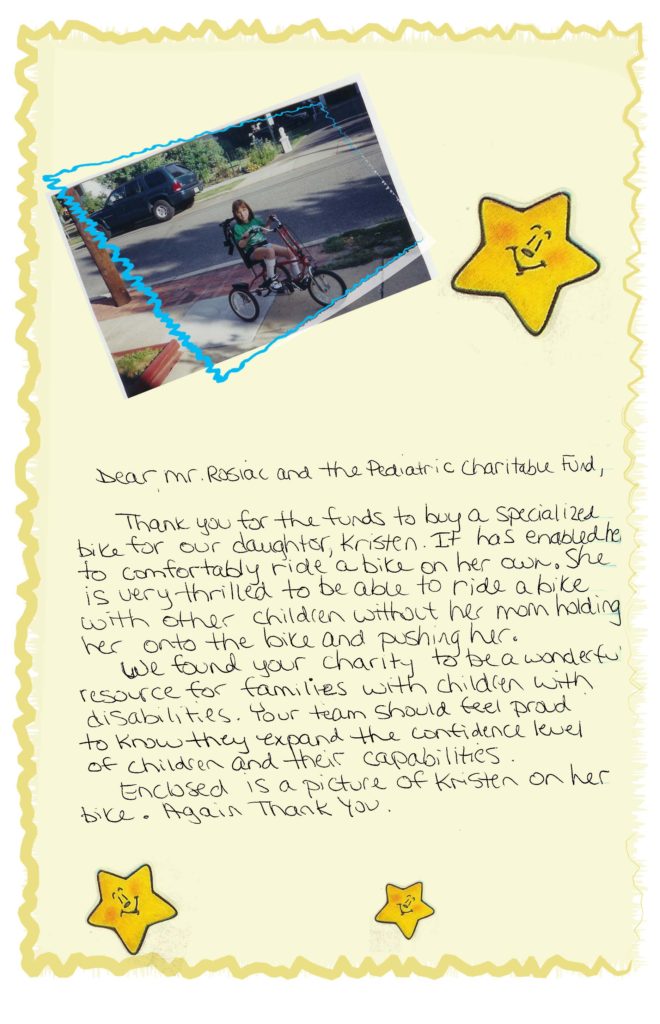 Dear, Mr. Rosiac and the Pediatric Charitable Fund,
Thank you for the funds to buy a specialized
bike for our daughter, Kristen. It has enabled he
to comfortably ride a bike on her own. She
is very thrilled to be able to ride a bike
with other children without her mom holding
her onto the bike and pushing her.
We found your charity to be a wonderfu
resource for families with children with
disabilities. Your team should feel proud
to know they expand the confidence level
of children and their capabilities.
Enclosed is a picture of Kristen on her
bike. Again Thank You.